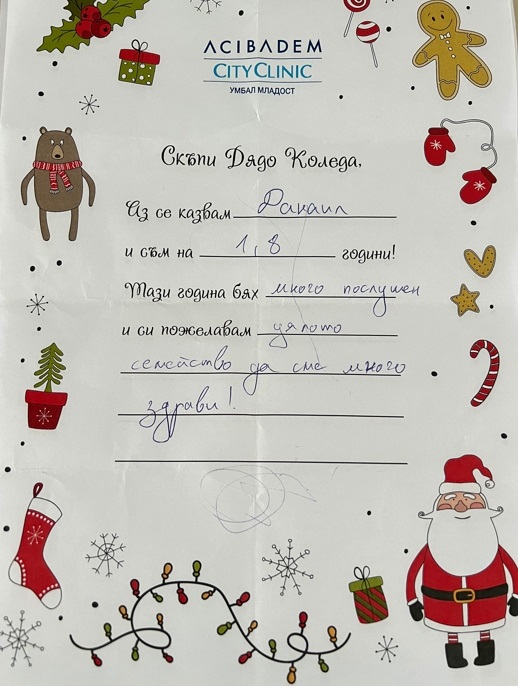 ACIBADEM
CITYCLINIC
УМБАЛ МЛАДОСТ
Скъпи Дядо Коледа,
Аз се казвам Рафаил
и съм на 1,8 години!
Тази година бях много послушен
и си пожелавам цялото
семейство да сме много
здрави!